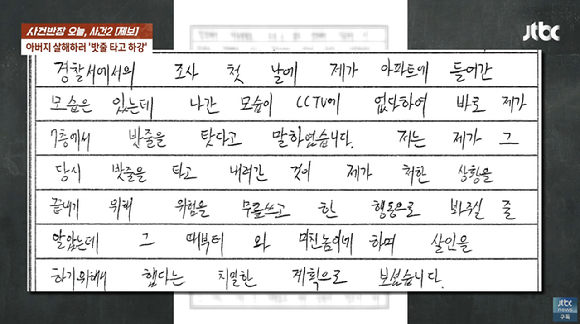 사건반장 오늘, 사건2 [제보]
아버지 살해하러 '밧줄 타고 하강'
jtbc
경찰서에서의 조사 첫 날에 제가 아파트에 들어간
모습은 있는데 나간 모습이 CCTV에 없다하여 바로 제가
7층에서 밧줄을 탓다고 말하였습니다. 저는 제가 그
당시 밧줄을 타고 내려간 것이 제가 처한 상황을
끝내기 위해 위험을 무릅쓰고 한 행동으로 봐주실 줄
알았는데 그 때부터 와 미친놈이네 하며 살인을
하기위해서 했다는 치밀한 계획으로 보셨습니다.
jtbc
news
구독